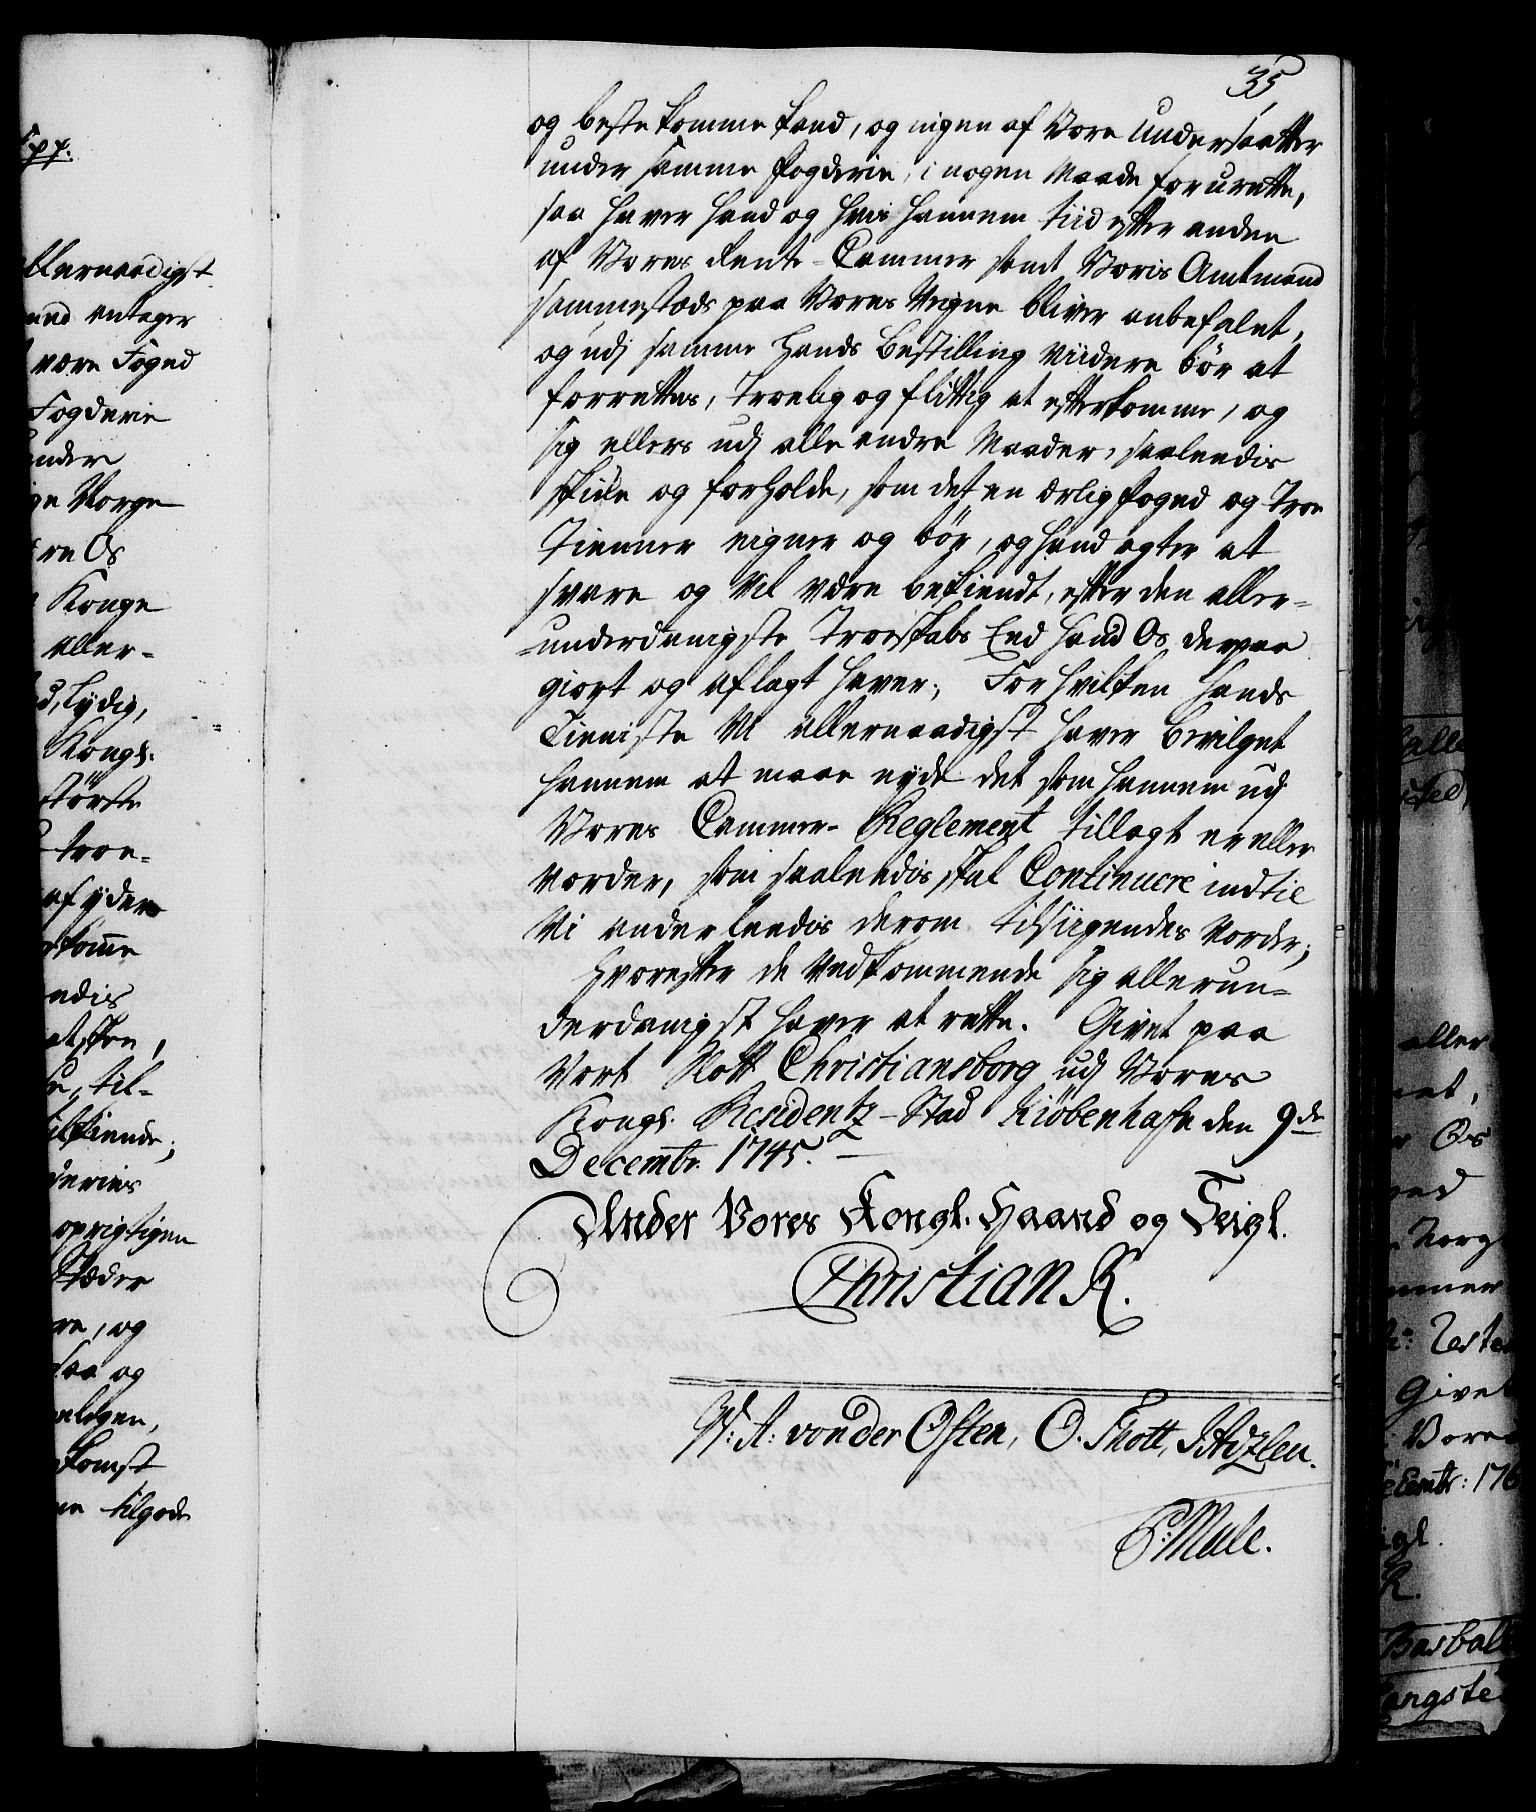 35
og beste komme kand, og ingen af Vore Undersaatter
under samme Fogderie, i nogen Maade forurette,
saa haver hand og hvis hannem tiid efter anden
af Vores Rente-Cammer samt Voris Amtmand
sammestæds paa Vores Veigne bliver anbefalet,
og udj samme hands Bestilling viidere bör at
forrettes, Troelig og flittig at efterkomme, og
sig ellers udj alle andre Maader, saaleedis
skicke og forholde, som det en ærlig Foged og Troe
Tienner eigner og bör, og hand agter at
svare og Vil være bekiendt, efter den aller-
underdanigste Troeskabs Eed hand Os derpaa
giort og aflagt haver; For hvilken hands
Tieniste Vi allernaadigst haver bevilget
hannem at maae nyde det som hannem udj
Vores Cammer-Reglement tillagt er eller
vorder, som saaleedis skal Continuere indtil
Vi anderleedis derom tilsiigendes Vorder;
Hvorefter de Vedkommende sig allerun-
derdanigst haver at rette. Givet paa
Vort Slott Christiansborg udj Vores
Kongl. Residentz-Stad Kiöbenhafn den 9de
Decembr. 1745.
Under Vores Kongl. Haand og Seigl.
Christian R.
W: A: von der Osten, O. Thott,
P: Mule.
Fogderie
være Foged
Kongl:
lydig,
oprigtigen
tilgode